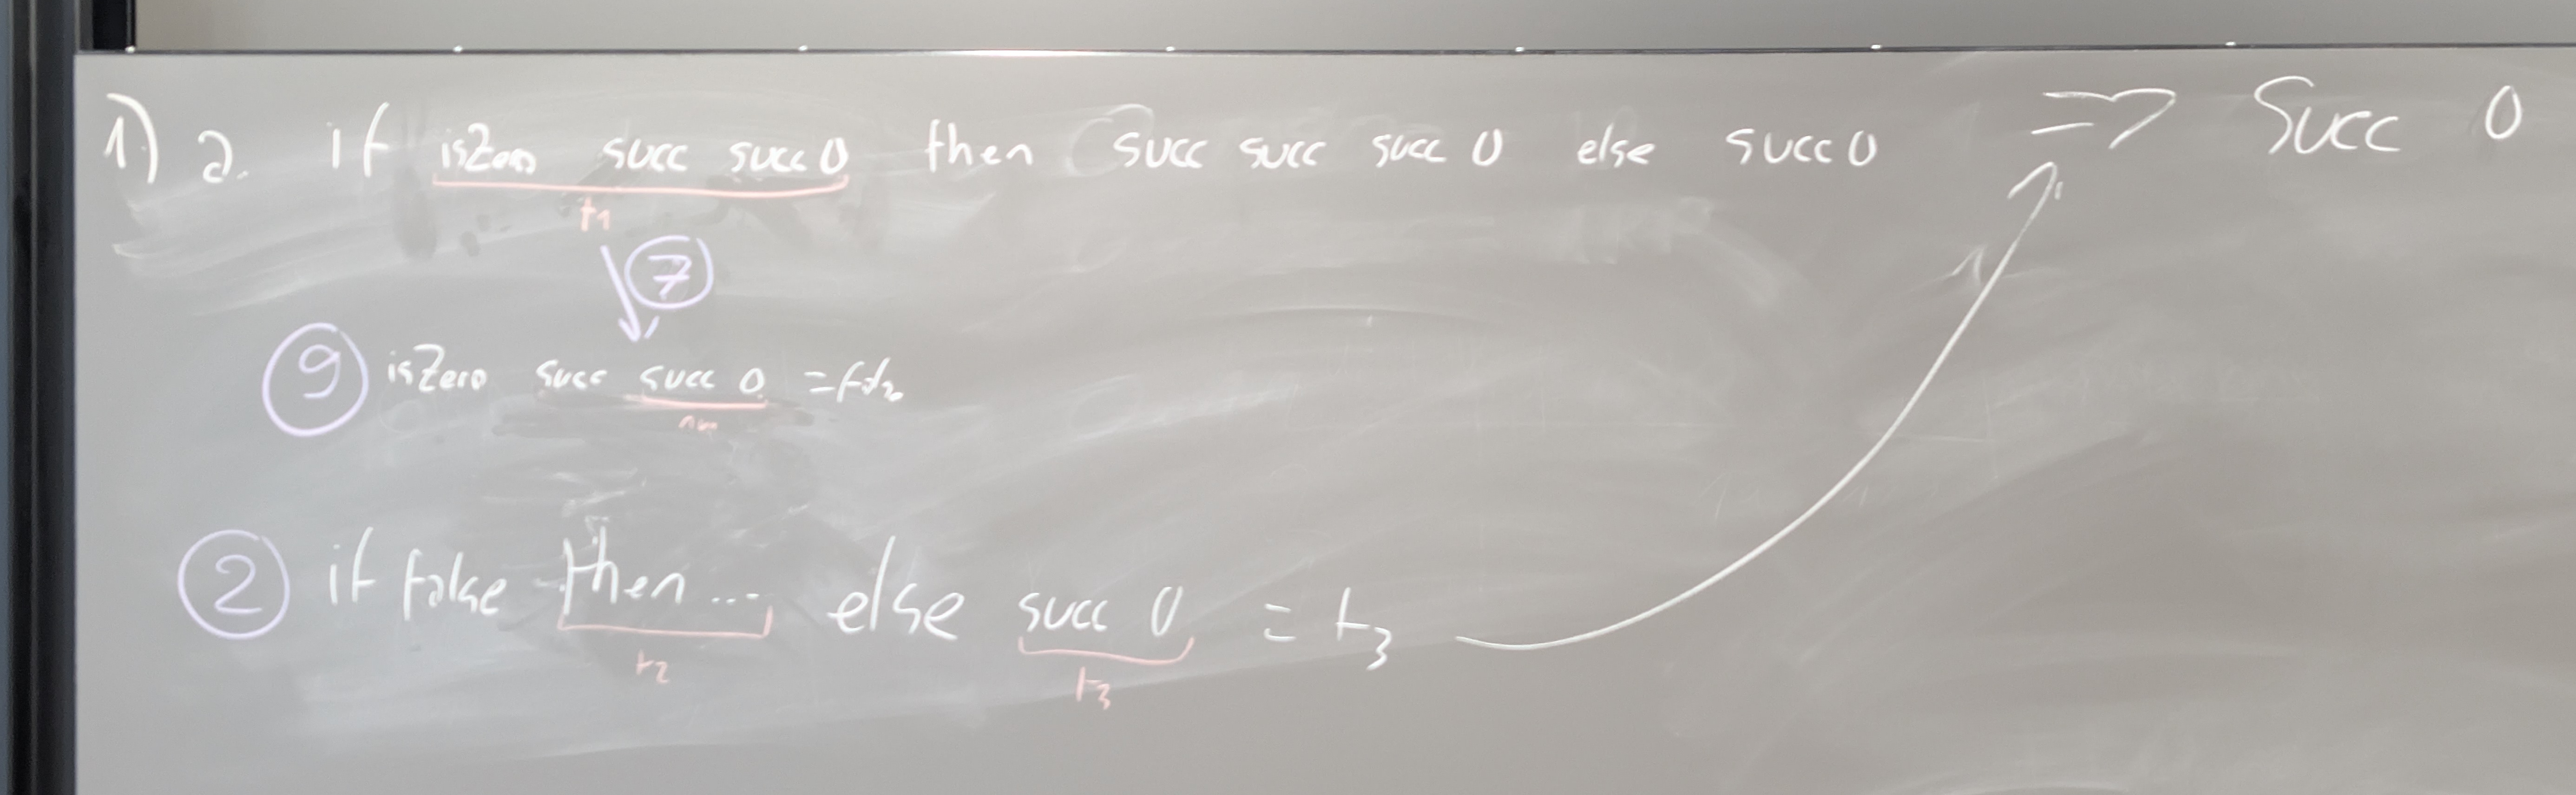 1) a. if isZero succ succ 0 then succ succ succ 0 else succ 0 => Succ 0
t1
7
9 isZero succ succ 0 =
nv
2 if false then ... else succ 0 = t3
t2 t3